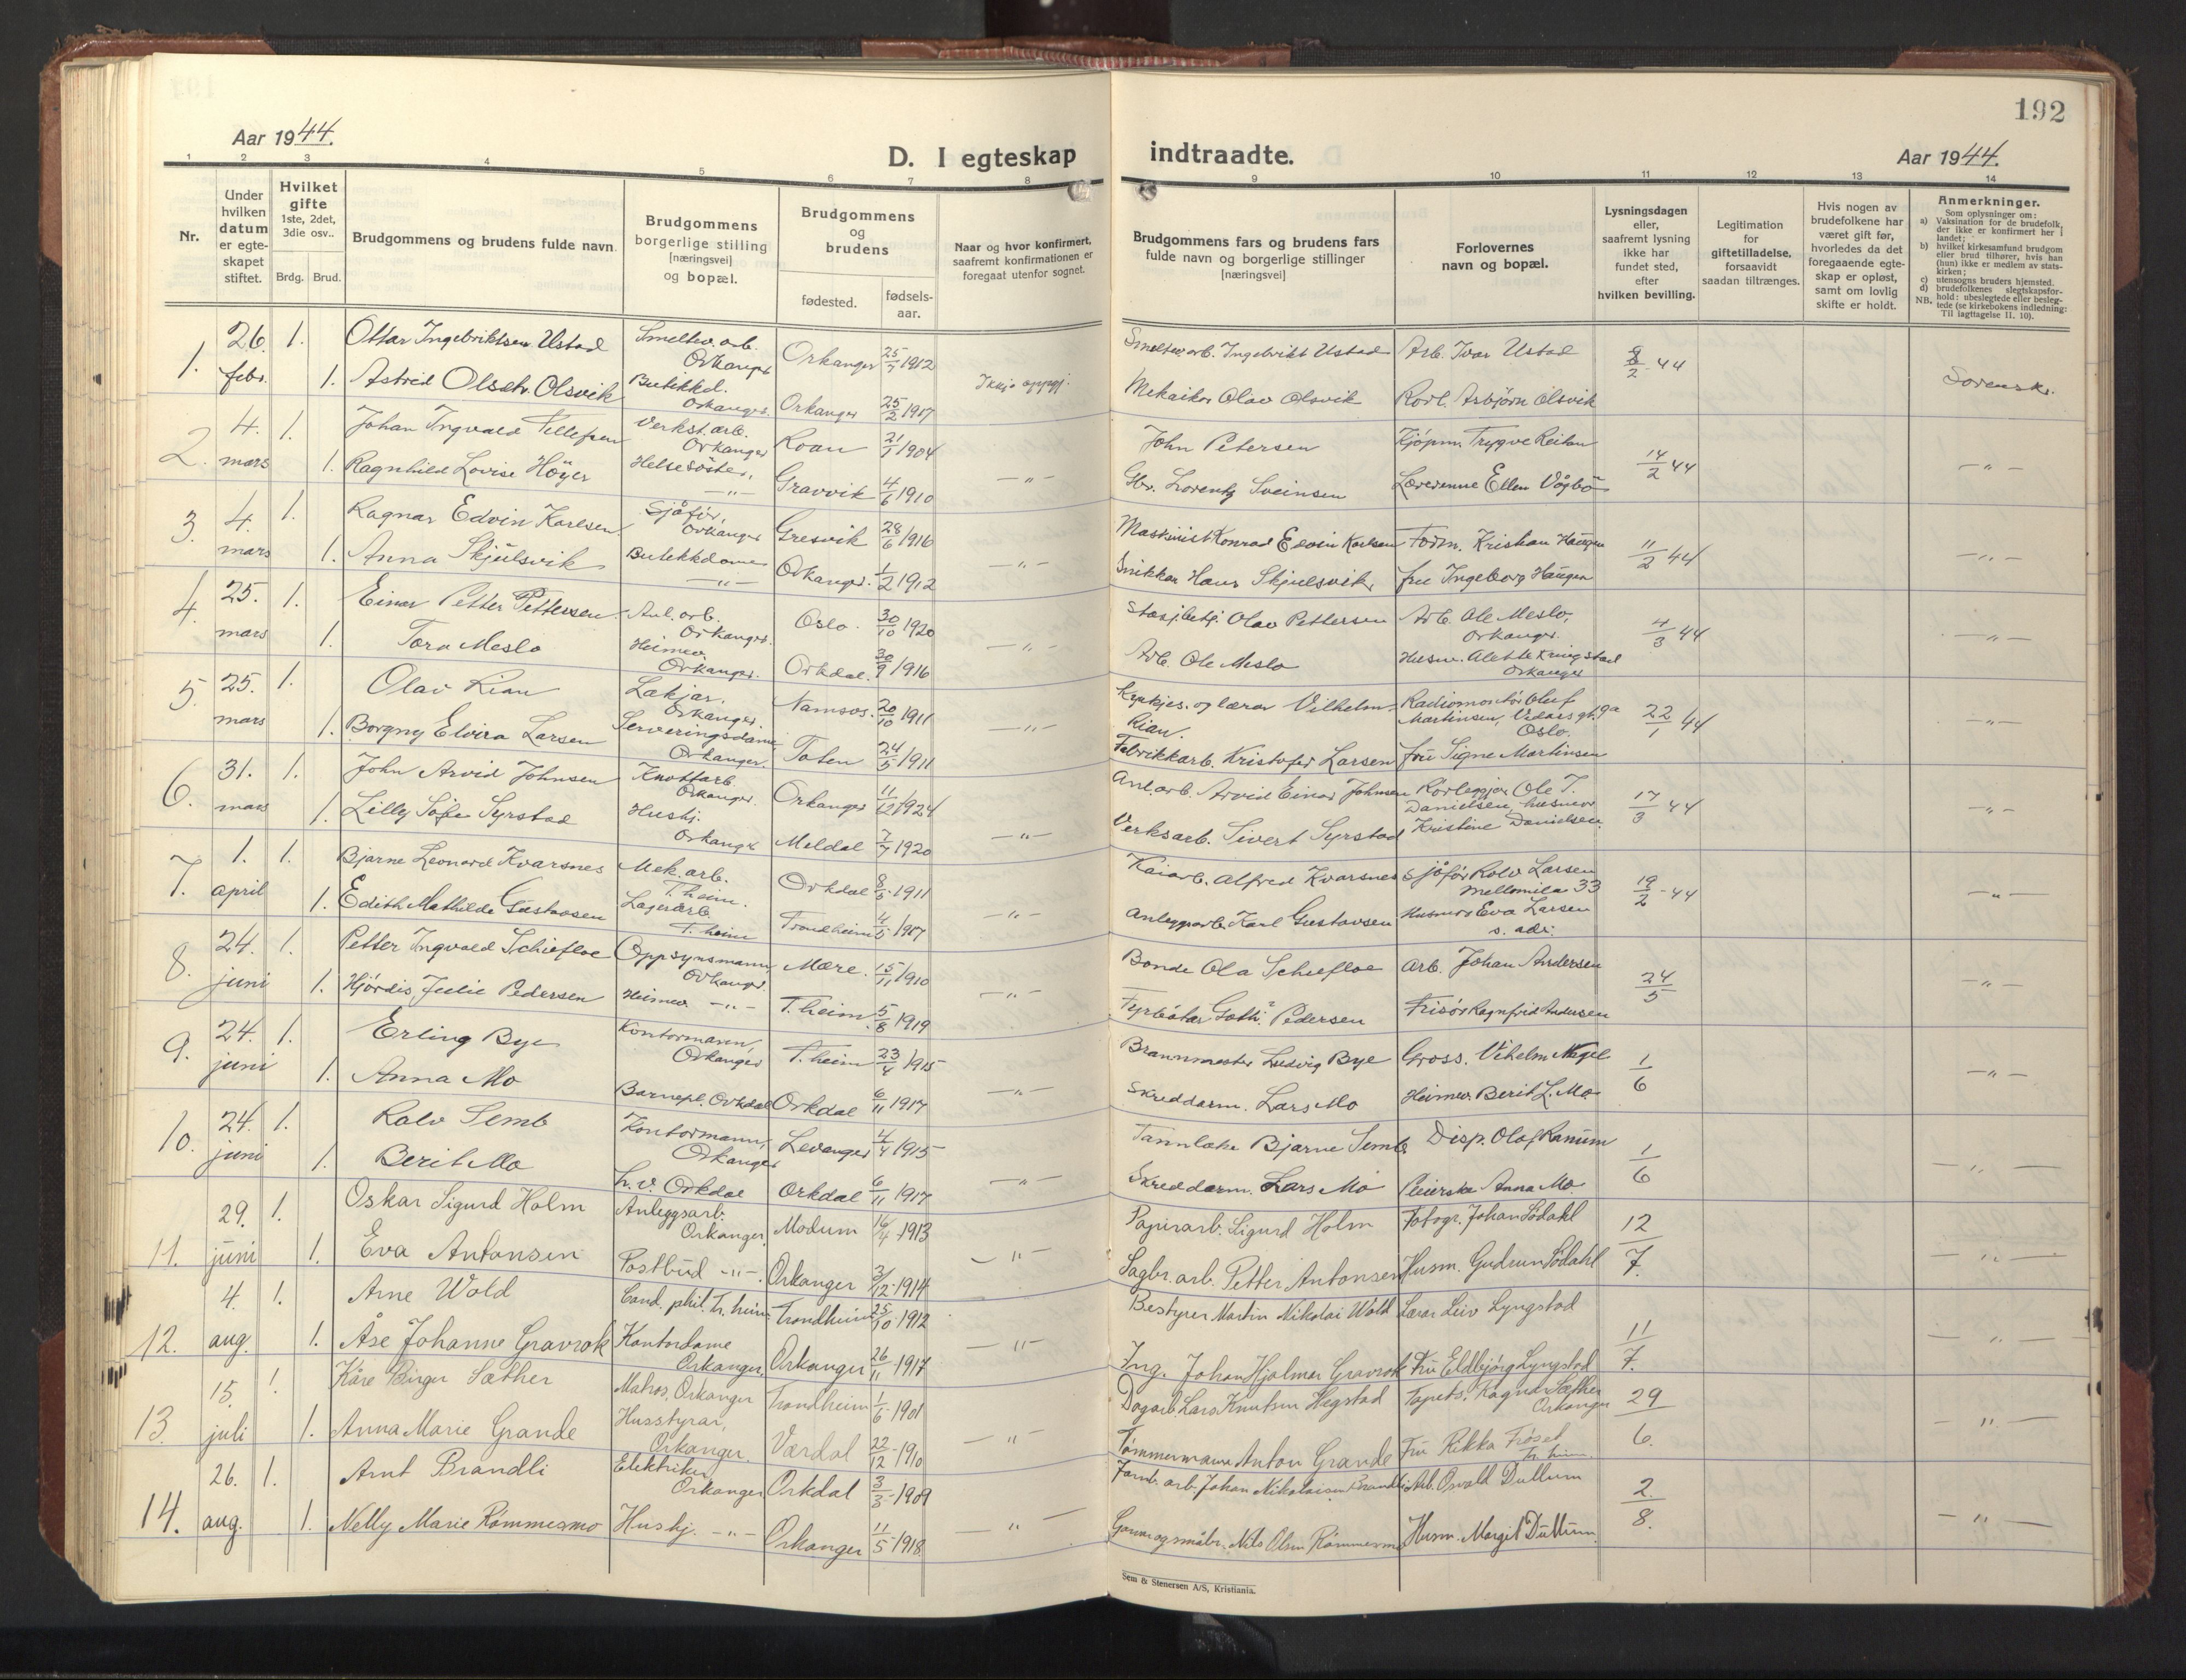 192
Aar 1944.
D. I egteskap indtraadte.
Aar 1944.
1 2 3 4 5 6 7 8 9 10 11 12 13 14
Nr.
Under hvilken datum er egte-skapet stiftet.
Hvilket gifte
1ste, 2det, 3die osv..
Brdg. Brud.
Brudgommens og brudens fulde navn.
Brudgommens borgerlige stilling [næringsvei] og bopæl.
Brudgommens og brudens
fødested. fødsels-aar.
Naar og hvor konfirmert, saafremt konfirmationen er foregaat utenfor sognet.
Brudgommens fars og brudens fars fulde navn og borgerlige stillinger [næringsvei]
Forlovernes navn og bopæl.
Lysningsdagen eller, saafremt lysning ikke har fundet sted, efter hvilken bevilling.
Legitimation for giftetilladelse, forsaavidt saadan tiltrænges.
Hvis nogen av brudefolkene har været gift før, hvorledes da det foregaaende egte-skap er opløst, samt om lovlig skifte er holdt.
Anmerkninger.
Som oplysninger om:
a) Vaksination for de brudefolk, der ikke er konfirmert her i landet;
b) hvilket kirkesamfund brudgom eller brud tilhører, hvis han (hun) ikke er medlem av stats-kirken;
c) utensogns bruders hjemsted.
d) brudefolkenes slegtskapsfor-hold: ubeslegtede eller besleg-tede (se kirkebokens indledning: Til iagttagelse II. 10).
NB.
1. 26. febr. 1. Ottar Ingebriktsen Ustad Smeltev. arb. Orkanger Orkanger 25/7 1912 Smeltev. arb. Ingebrikt Ustad Arb. Ivar Ustad 8/2 44
1. Astrid Olsdtr. Olsvik Butikkd. Orkanger Orkanger 25/2 1917 Ikkje oppgj. Mekaiker Olav Olsvik Rørl. Asbjørn Olsvik Sorenskr.
2. 4. mars 1. Johan Ingvald Tellefsen Verkst. arb. Orkanger Roan 21/1 1904 John Petersen Kjøpm. Trygve Reitan 14/2 44
1. Ragnhild Lovise Höyer Helsesöster, -"- Gravvik 4/6 1910 -"- Gbr. Lorentz Sveinsen Lærerinne Ellen Vågbø -"-
3. 4. mars 1. Ragnar Edvin Karlsen Sjåfør, Orkanger Gresvik 28/6 1916 Maskinist Konrad Edvin Karlsen Form. Kristian Haugen 11/2 44
1. Anna Skjulsvik Butikkdame -"- Orkanger 1/2 1912 -"- Snikkar Hans Skjulsvik fru Ingeborg Haugen -"-
4. 25. mars 1. Einar Petter Pettersen Anl. arb. Orkanger Oslo 30/10 1920 Stasj.betj. Olav Pettersen Arb. Ole Meslo, Orkanger 4/3 44
1. Tora Meslo Heimev. Orkanger Orkdal 30/9 1916 -"- Arb. Ole Meslo Husm. Alette Kringstad Orkanger -"-
5. 25. mars 1. Olav Rian Lakjar, Orkanger Namsos 20/10 1911 Kyrkjes. og lærar Vilhelm Rian. Radiomontør Oluf Martinsen, Vidars gt. 9a Oslo. 22/1 44
1. Borgny Elvira Larsen Serveringsdame Orkanger Toten 24/5 1911 -"- Fabrikkarb. Kristofer Larsen fru Signe Martinsen -"-
6. 31. mars 1. John Arvid Johnsen Knottarb. Orkanger Orkanger 11/12 1924 Anl. arb. Arvid Einar Johnsen Rörleggjar Ole T. Danielsen, husmor 17/3 44
1. Lilly Sofie Syrstad Hushj. Orkanger Meldal 7/7 1920 -"- Verksarb. Sivert Syrstad Kristine Danielsen -"-
7. 1. april 1. Bjarne Leonard Kvarsnes Mek. arb. T.heim. Orkdal 1911 Kaiarb. Alfred Kvarsnes Sjåför Rolv Larsen Mellomila 33 19/2 44
1. Edith Mathilde Gustavsen Lagerarb. T.heim Trondheim 1917 -"- Anleggsarb. Karl Gustavsen Husmor Eva Larsen s. adr. -"-
8. 24. juni 1. Petter Ingvald Schiefloe Oppsynsmann, Orkanger Mære 15/11 1910 Bonde Ola Schiefloe Arb. Johan Andersen 24/5
1. Hjördis Julie Pedersen Heimev. -"- T.heim 5/8 1919 -"- Fyrbøtar Goth.? Pedersen Frisör Ragnfrid Andersen -"-
9. 24. juni 1. Erling Bye Kontormann, Orkanger T.heim 23/4 1915 Brannmester Ludvig Bye Gross. Vihelm Nagel 1/6
1. Anna Mo Barnepl. Orkdal Orkdal 6/11 1917 -"- Skreddarm. Lars Mo Heimev. Berit L. Mo -"-
10. 24. juni 1. Rolv Semb Kontormann, Orkanger Levanger 4/4 1915 Tannlæke Bjarne Semb Disp. Olaf Ranum 1/6
1. Berit Mo L.v. Orkdal Orkdal 6/11 1917 -"- Skreddarm. Lars Mo Pleierske Anna Mo -"-
11. 29. juni 1. Oskar Sigurd Holm Anleggsarb. Orkanger Modum 16/4 1913 Papirarb. Sigurd Holm Fotogr. Johan Södahl 12/7.
1. Eva Antonsen Postbud -"- Orkanger 3/12 1914 -"- Sagbr. arb. Petter Antonsen Husm. Gudrun Södahl -"-
12. 4. aug. 1. Arne Wold Cand. phil. Tr.heim Trondheim 25/10 1912 Bestyrer Martin Nikolai Wold Lærar Leiv Lyngstad 11/7.
1. Åse Johanne Gravrok Kontordame Orkanger Orkanger 26/11 1917 -"- Ing. Johan Hjalmar Gravrok Fru Eldbjörg Lyngstad -"-
13. 15. juli 1. Kåre Birger Sæther Matros, Orkanger Trondheim 1/6 1901 Dagarb. Lars Knutsen Hegstad Tapets. Ragnar Sæther Orkanger 29/6.
1. Anna Marie Grande Husstyrar, Orkanger Værdal 22/12 1910 -"- Tömmermann Anton Grande Fru Rikka Fröset Tr.heim -"-
14. 26. aug. 1. Arnt Brandli Elektriker, Orkanger Orkdal 3/3 1909 Jarnb. arb. Johan Nikolaisen Brandli Arb. Osvald Dullum 2/8.
1. Nelly Marie Römmesmo Hushj. -"- Orkanger 11/5 1918 -"- Nils Olsen Römmesmo Husm. Margit Dullum -"-
Sem & Stenersen A/S, Kristiania.